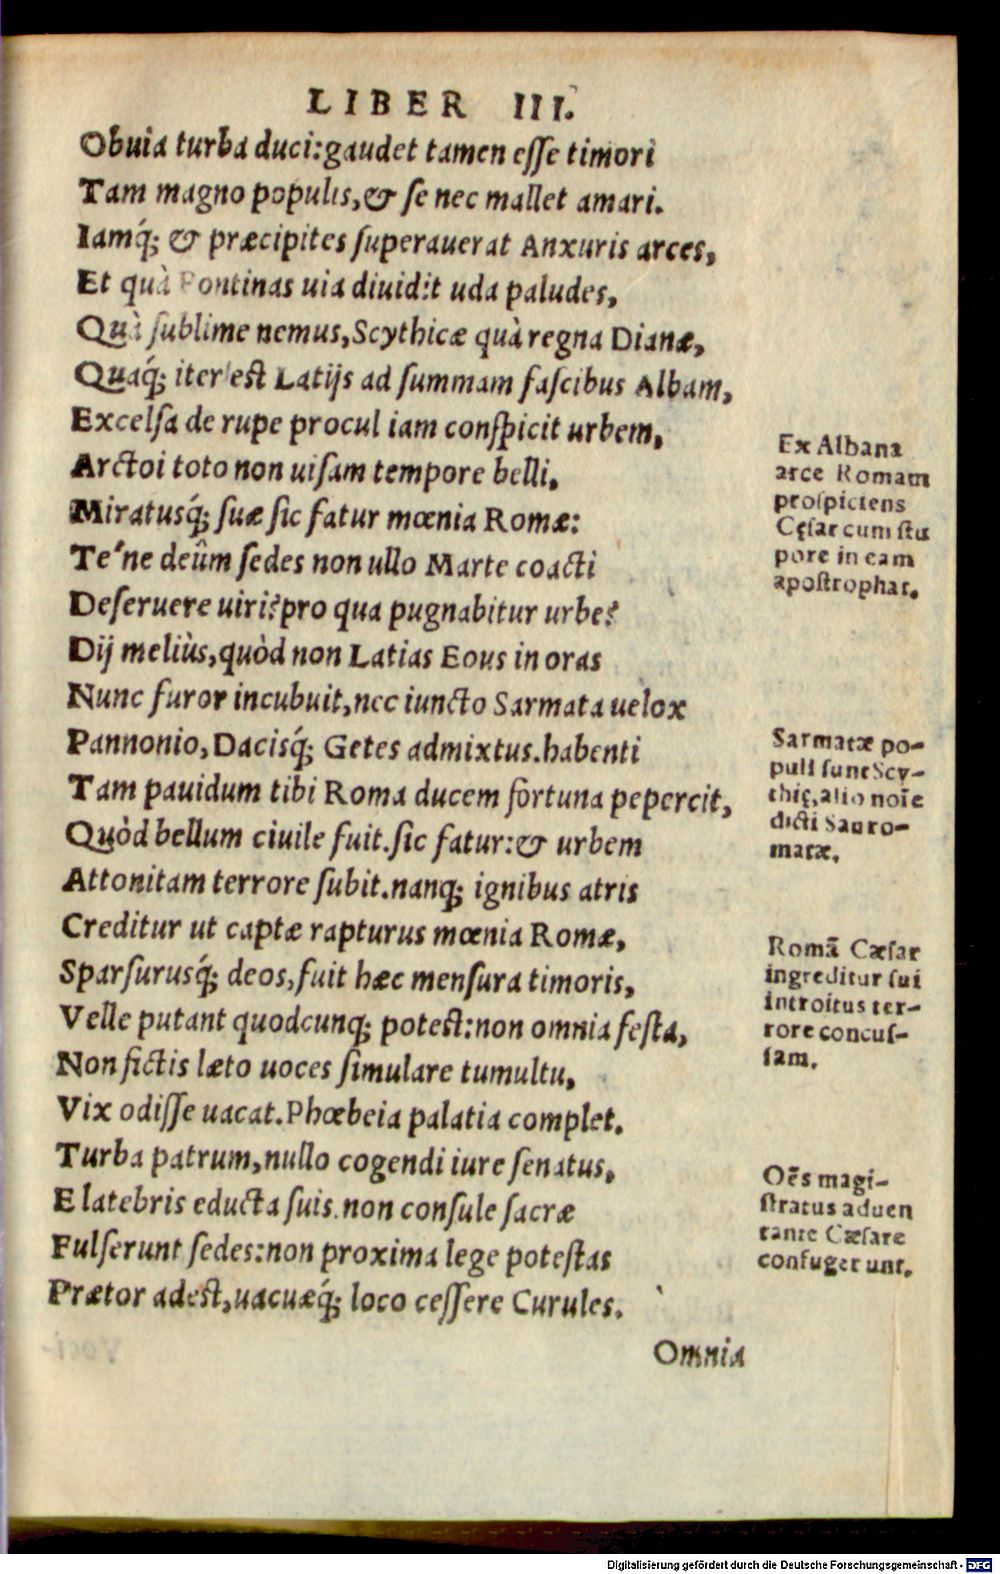 LIBER III.
Obuia turba duci:gaudet tamen esse timori
Tam magno populis,& se nec mallet amari.
Iamq́; & præcipites superauerat Anxuris arces,
Et quà Pontinas uia diuidit uda paludes,
Quà sublime nemus,Scythicæ quà regna Dianæ,
Quaq́; iter est Latijs ad summam fascibus Albam,
Excelsa de rupe procul iam conspicit urbem,
Arctoi toto non uisam tempore belli.
Miratusq́; suæ sic fatur mœnia Romæ:
Te'ne deûm sedes non ullo Marte coacti
Deseruere uiri?pro qua pugnabitur urbe?
Dij meliùs,quòd non Latias Eous in oras
Nunc furor incubuit,nec iuncto Sarmata uelox
Pannonio,Dacisq́; Getes admixtus.habenti
Tam pauidum tibi Roma ducem fortuna pepercit,
Quòd bellum ciuile fuit.sic fatur:& urbem
Attonitam terrore subit.nanq; ignibus atris
Creditur ut captæ rapturus mœnia Romæ,
Sparsurusq́; deos,fuit hæc mensura timoris,
Velle putant quodcunq; potest:non omnia festa,
Non fictis læto uoces simulare tumultu,
Vix odisse uacat.Phœbeia palatia complet.
Turba patrum,nullo cogendi iure senatus,
E latebris educta suis.non consule sacræ
Fulserunt sedes:non proxima lege potestas
Prætor adest,uacuæq́; loco cessere Curules.
Omnia
Ex Albana
arce Romam
prospiciens
Cęsar cum stu
pore in eam
apostrophat.
Sarmatæ po-
puli sunt Scy-
thię,alio noīe
dicti Sauro-
matæ.
Romā Cæsar
ingreditur sui
introitus ter-
rore concus-
sam.
Oēs magi-
stratus aduen
tante Cæsare
confugerunt.
Digitalisierung gefördert durch die Deutsche Forschungsgemeinschaft - DFG